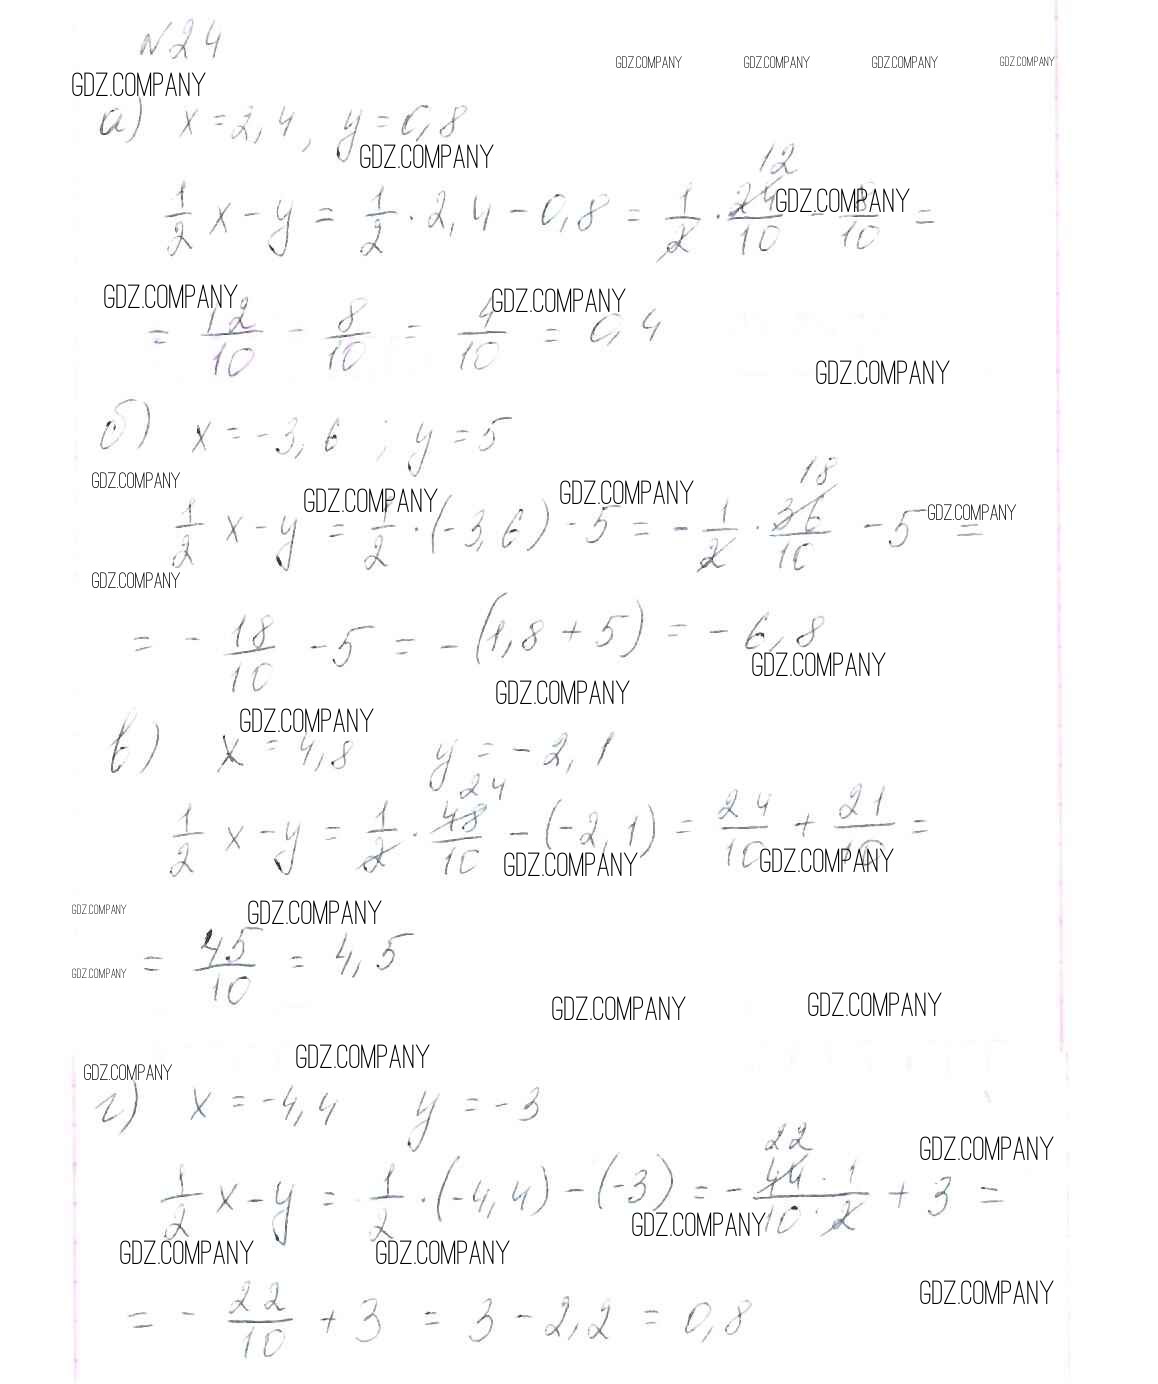 N24
GDZ.COMPANY GDZ.COMPANY GDZ.COMPANY GDZ.COMPANY GDZ.COMPANY
а) x = 2,4, y = 0,8
GDZ.COMPANY
12
1/2 x - y = 1/2 · 2,4 - 0,8 = 1/2 · 24/10 - 8/10 =
GDZ.COMPANY
GDZ.COMPANY GDZ.COMPANY
= 12/10 - 8/10 = 4/10 = 0,4
GDZ.COMPANY
б) x = -3,6 ; y = 5
GDZ.COMPANY GDZ.COMPANY GDZ.COMPANY GDZ.COMPANY
18
1/2 x - y = 1/2 · (-3,6) - 5 = - 1/2 · 36/10 - 5 =
GDZ.COMPANY
= - 18/10 - 5 = - (1,8 + 5) = - 6,8
GDZ.COMPANY GDZ.COMPANY
GDZ.COMPANY
в) x = 4,8 y = - 2,1
24
1/2 x - y = 1/2 · 48/10 - (-2,1) = 24/10 + 21/10 =
GDZ.COMPANY GDZ.COMPANY
GDZ.COMPANY GDZ.COMPANY
= 45/10 = 4,5
GDZ.COMPANY GDZ.COMPANY GDZ.COMPANY
GDZ.COMPANY GDZ.COMPANY
г) x = -4,4 y = -3
22
GDZ.COMPANY
1/2 x - y = 1/2 · (-4,4) - (-3) = - 44 · 1/10 · 2 + 3 =
GDZ.COMPANY
GDZ.COMPANY GDZ.COMPANY GDZ.COMPANY
= - 22/10 + 3 = 3 - 2,2 = 0,8